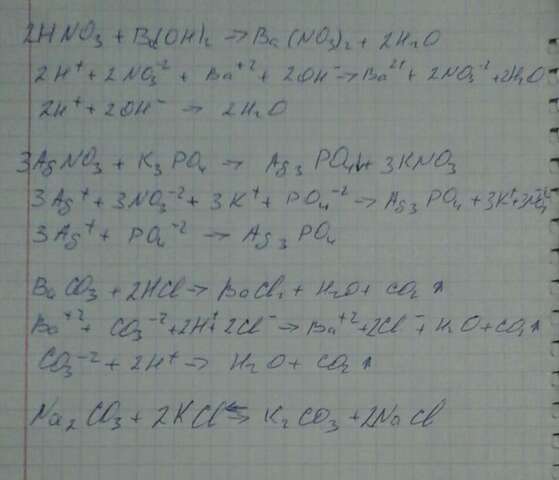 2HNO₃ + Ba(OH)₂ → Ba(NO₃)₂ + 2H₂O
2H⁺ + 2NO₃⁻² + Ba⁺² + 2OH⁻ → Ba²⁺ + 2NO₃⁻² + 2H₂O
2H⁺ + 2OH⁻ → 2H₂O
3AgNO₃ + K₃PO₄ → Ag₃PO₄↓ + 3KNO₃
3Ag⁺ + 3NO₃⁻² + 3K⁺ + PO₄⁻² → Ag₃PO₄ + 3K⁺ + 3NO₃⁻²
3Ag⁺ + PO₄⁻² → Ag₃PO₄
BaCO₃ + 2HCl → BaCl₂ + H₂O + CO₂↑
Ba⁺² + CO₃⁻² + 2H⁺ + 2Cl⁻ → Ba⁺² + 2Cl⁻ + H₂O + CO₂↑
CO₃⁻² + 2H⁺ → H₂O + CO₂↑
Na₂CO₃ + 2KCl ⇄ K₂CO₃ + 2NaCl